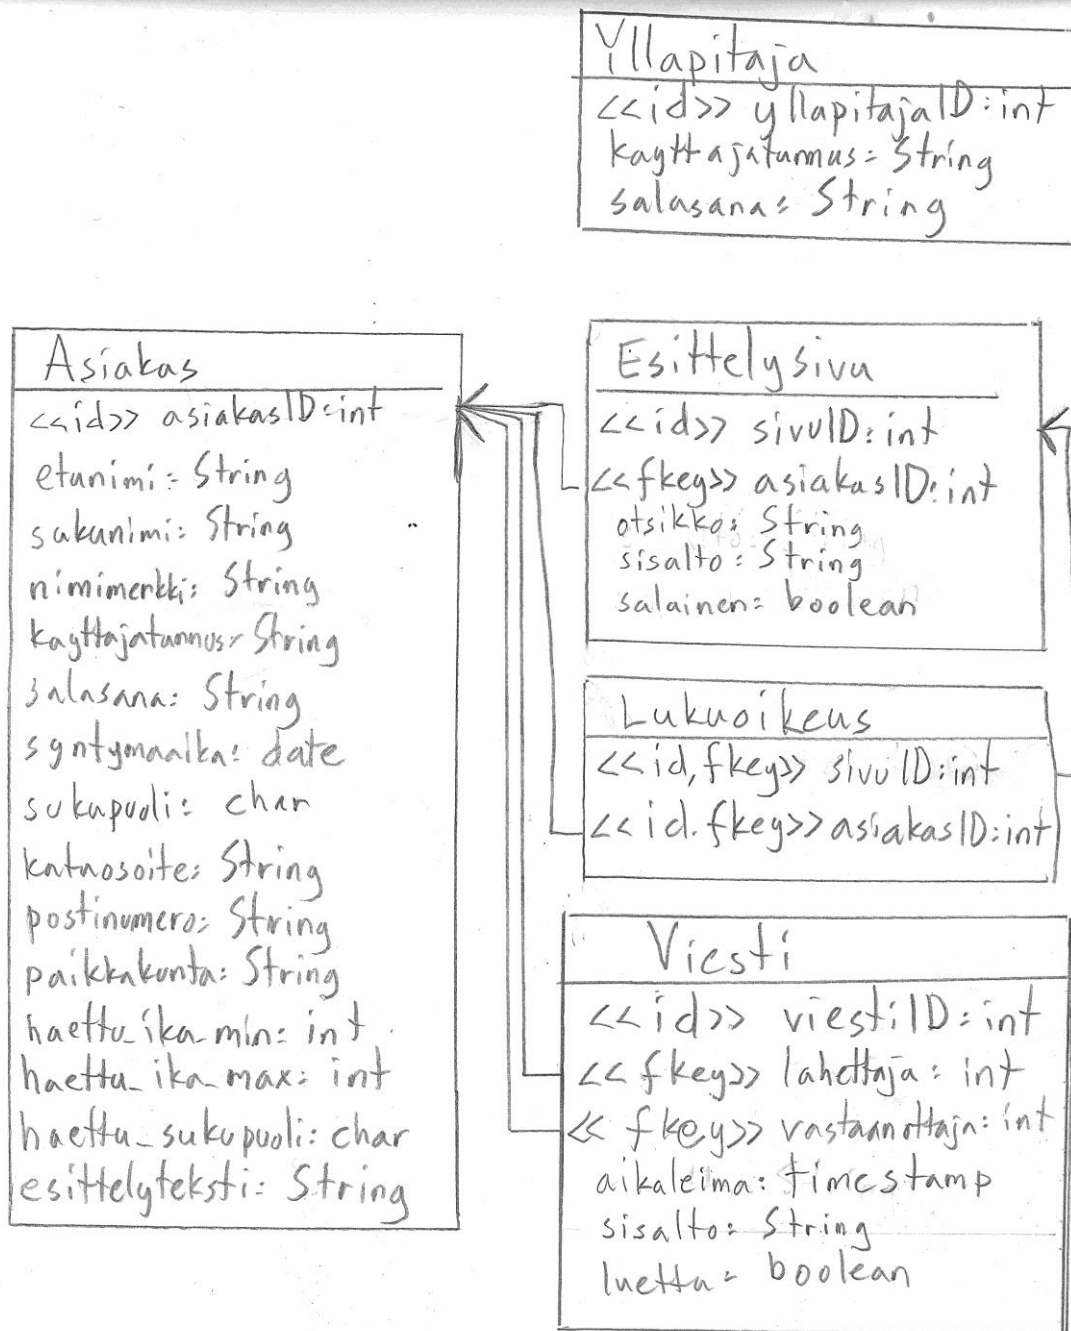 Yllapitaja
<<id>> yllapitajaID: int
kayttajatunnus: String
salasana: String
Asiakas
<<id>> asiakasID: int
etunimi: String
sukunimi: String
nimimerkki: String
kayttajatunnus: String
salasana: String
syntymaaika: date
sukupuoli: char
katuosoite: String
postinumero: String
paikkakunta: String
haettu_ika_min: int
haettu_ika_max: int
haettu_sukupuoli: char
esittelyteksti: String
Esittelysivu
<<id>> sivuID: int
<<fkey>> asiakasID: int
otsikko: String
sisalto: String
salainen: boolean
Lukuoikeus
<<id,fkey>> sivuID: int
<<id.fkey>> asiakasID: int
Viesti
<<id>> viestiID: int
<<fkey>> lahettaja: int
<<fkey>> vastaanottaja: int
aikaleima: timestamp
sisalto: String
luettu: boolean